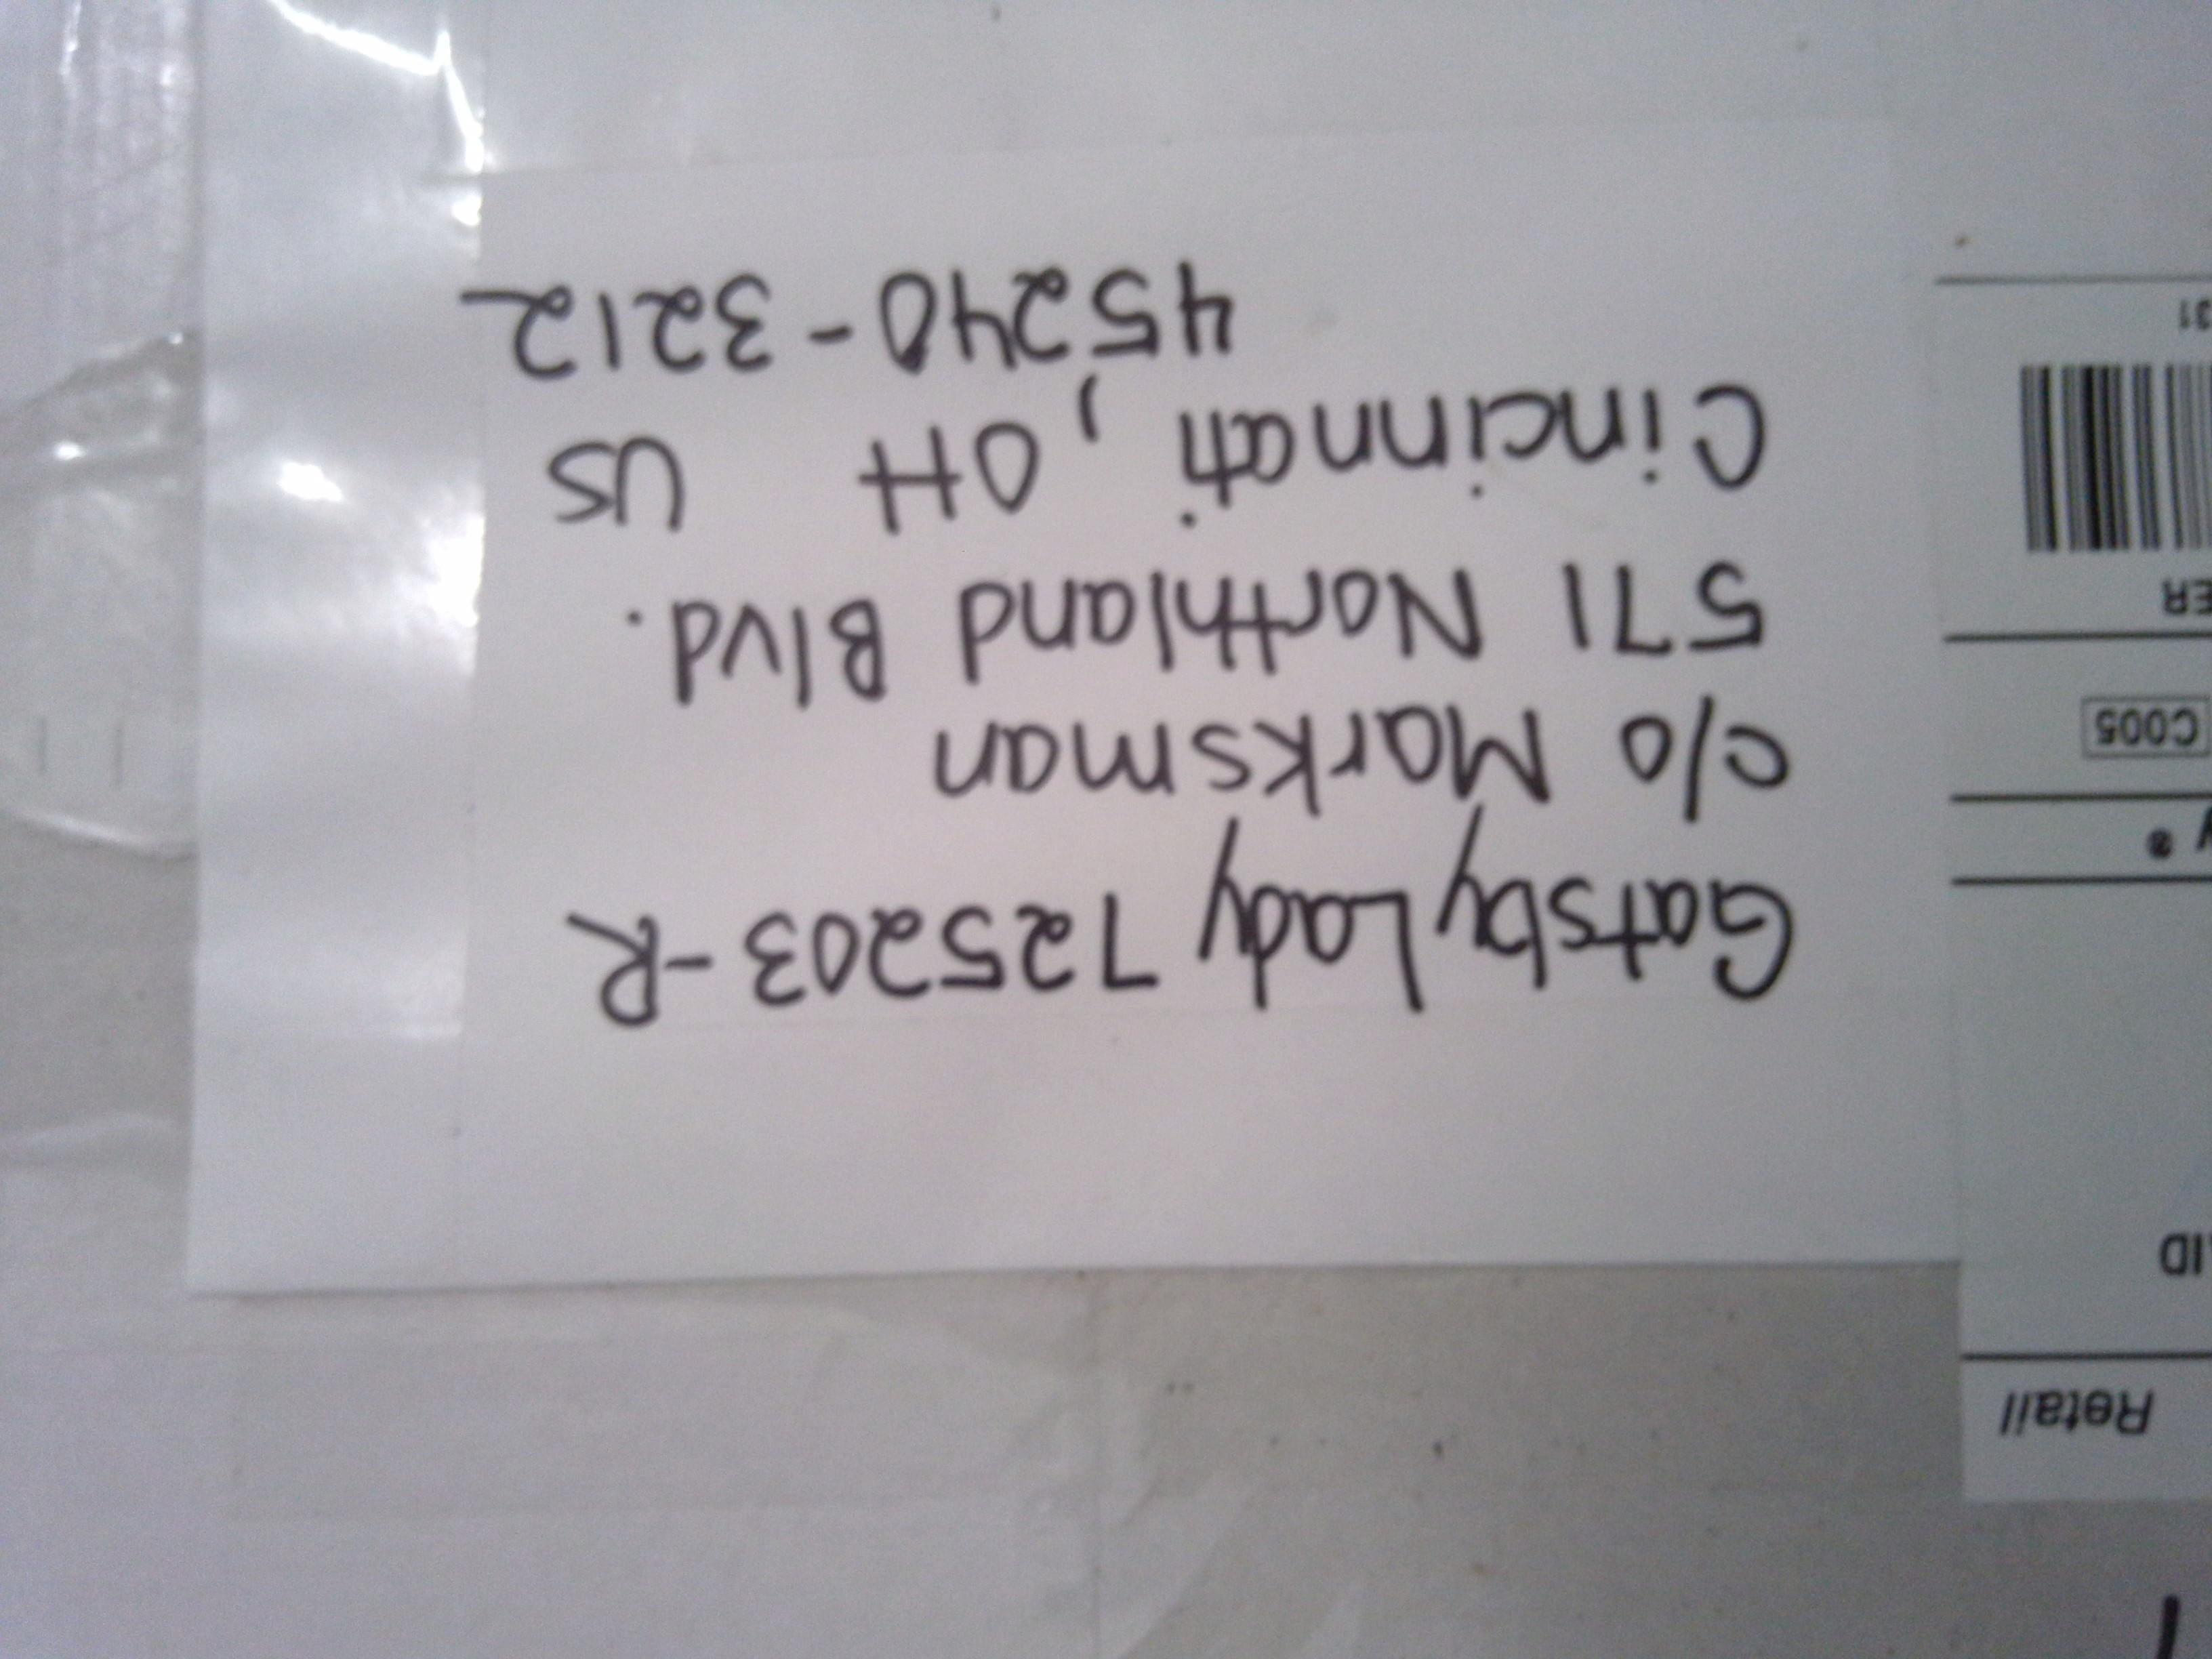 Gatsby Lady 725203-R
c/o Marksman
571 Northland Blvd.
Cincinnati, OH US
45240-3212
Retail
ID
C005
ER
31